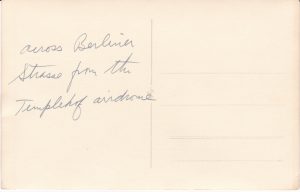 across Berliner
Strasse from the
Templehof airdrome